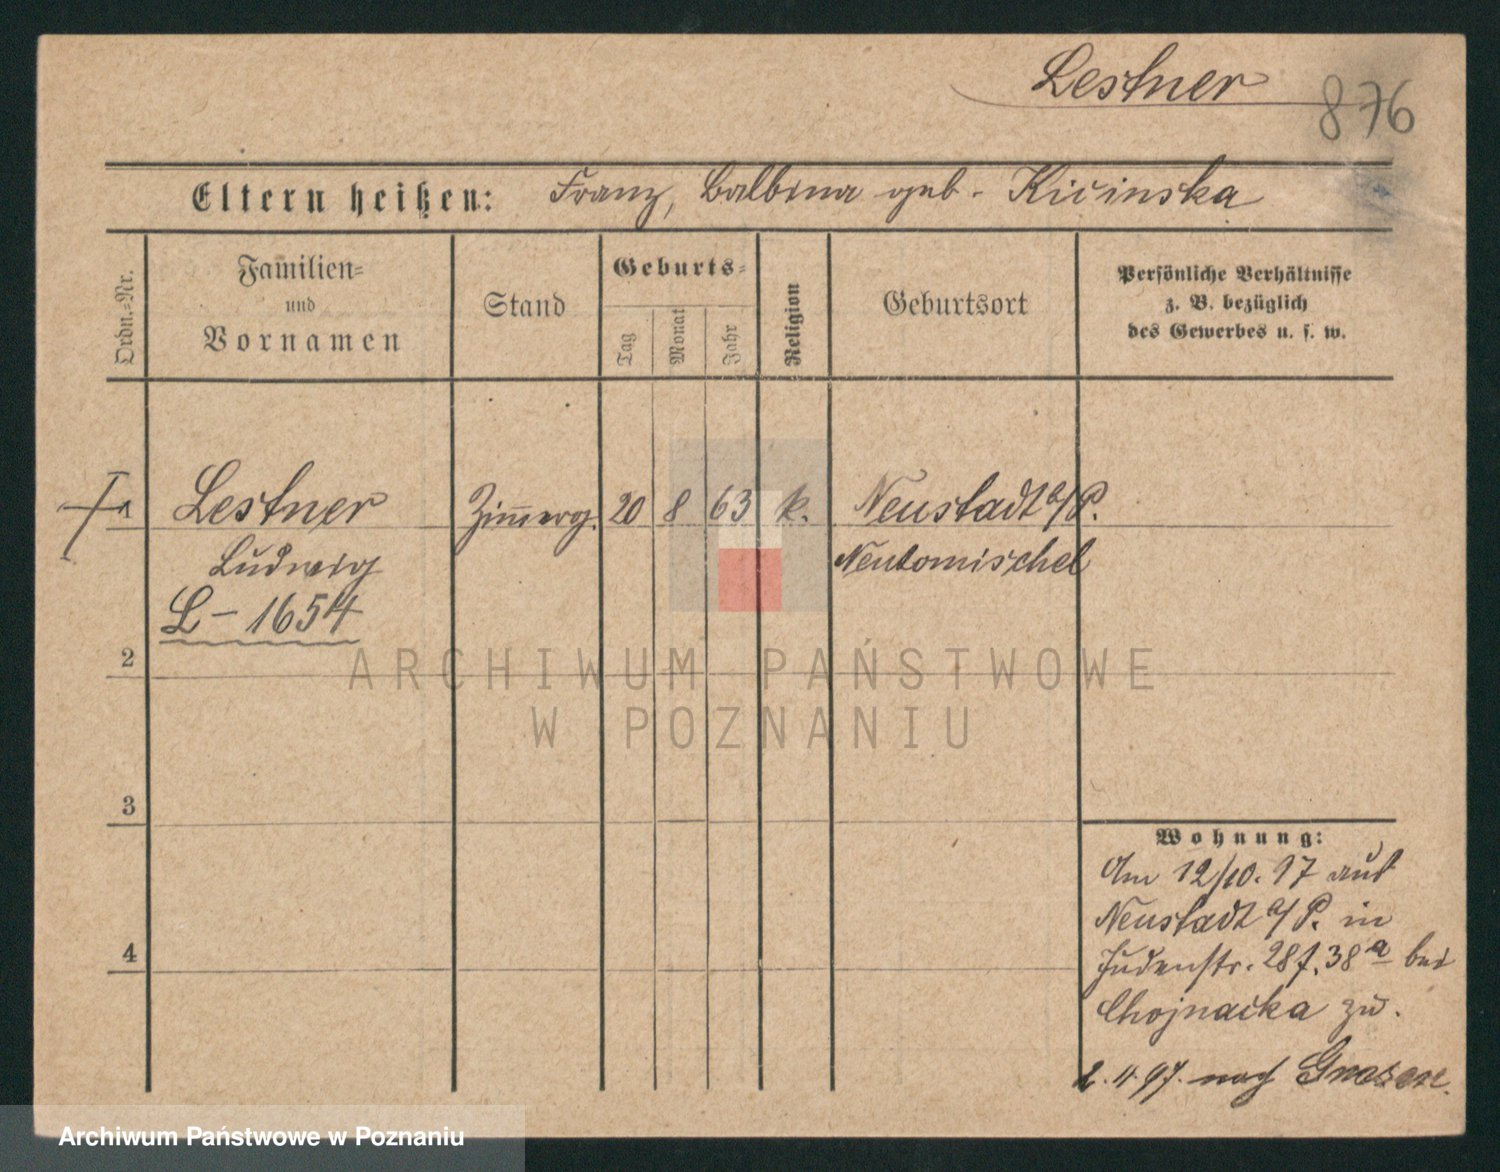 Lestner
876
Eltern heißen: Franz, Balbina geb. Kicinska
Ordn.=Nr.
Familien=
und
Vornamen
Stand
Geburts=
Tag
Monat
Jahr
Religion
Geburtsort
Persönliche Verhältnisse
z. B. bezüglich
des Gewerbes u. s. w.
1 Lestner Zim̅erg. 20 8 63 k. Neustadt b/P.
Ludwig Neutomischel
L-1654
2
ARCHIWUM PAŃSTWOWE
W POZNANIU
3
4
Wohnung:
Am 12/10. 97 aus
Neustadt b/P. in
Judenstr. 287. 38a bei
Chojnacka zu.
2.4.97. nach Gnesen.
Archiwum Państwowe w Poznaniu